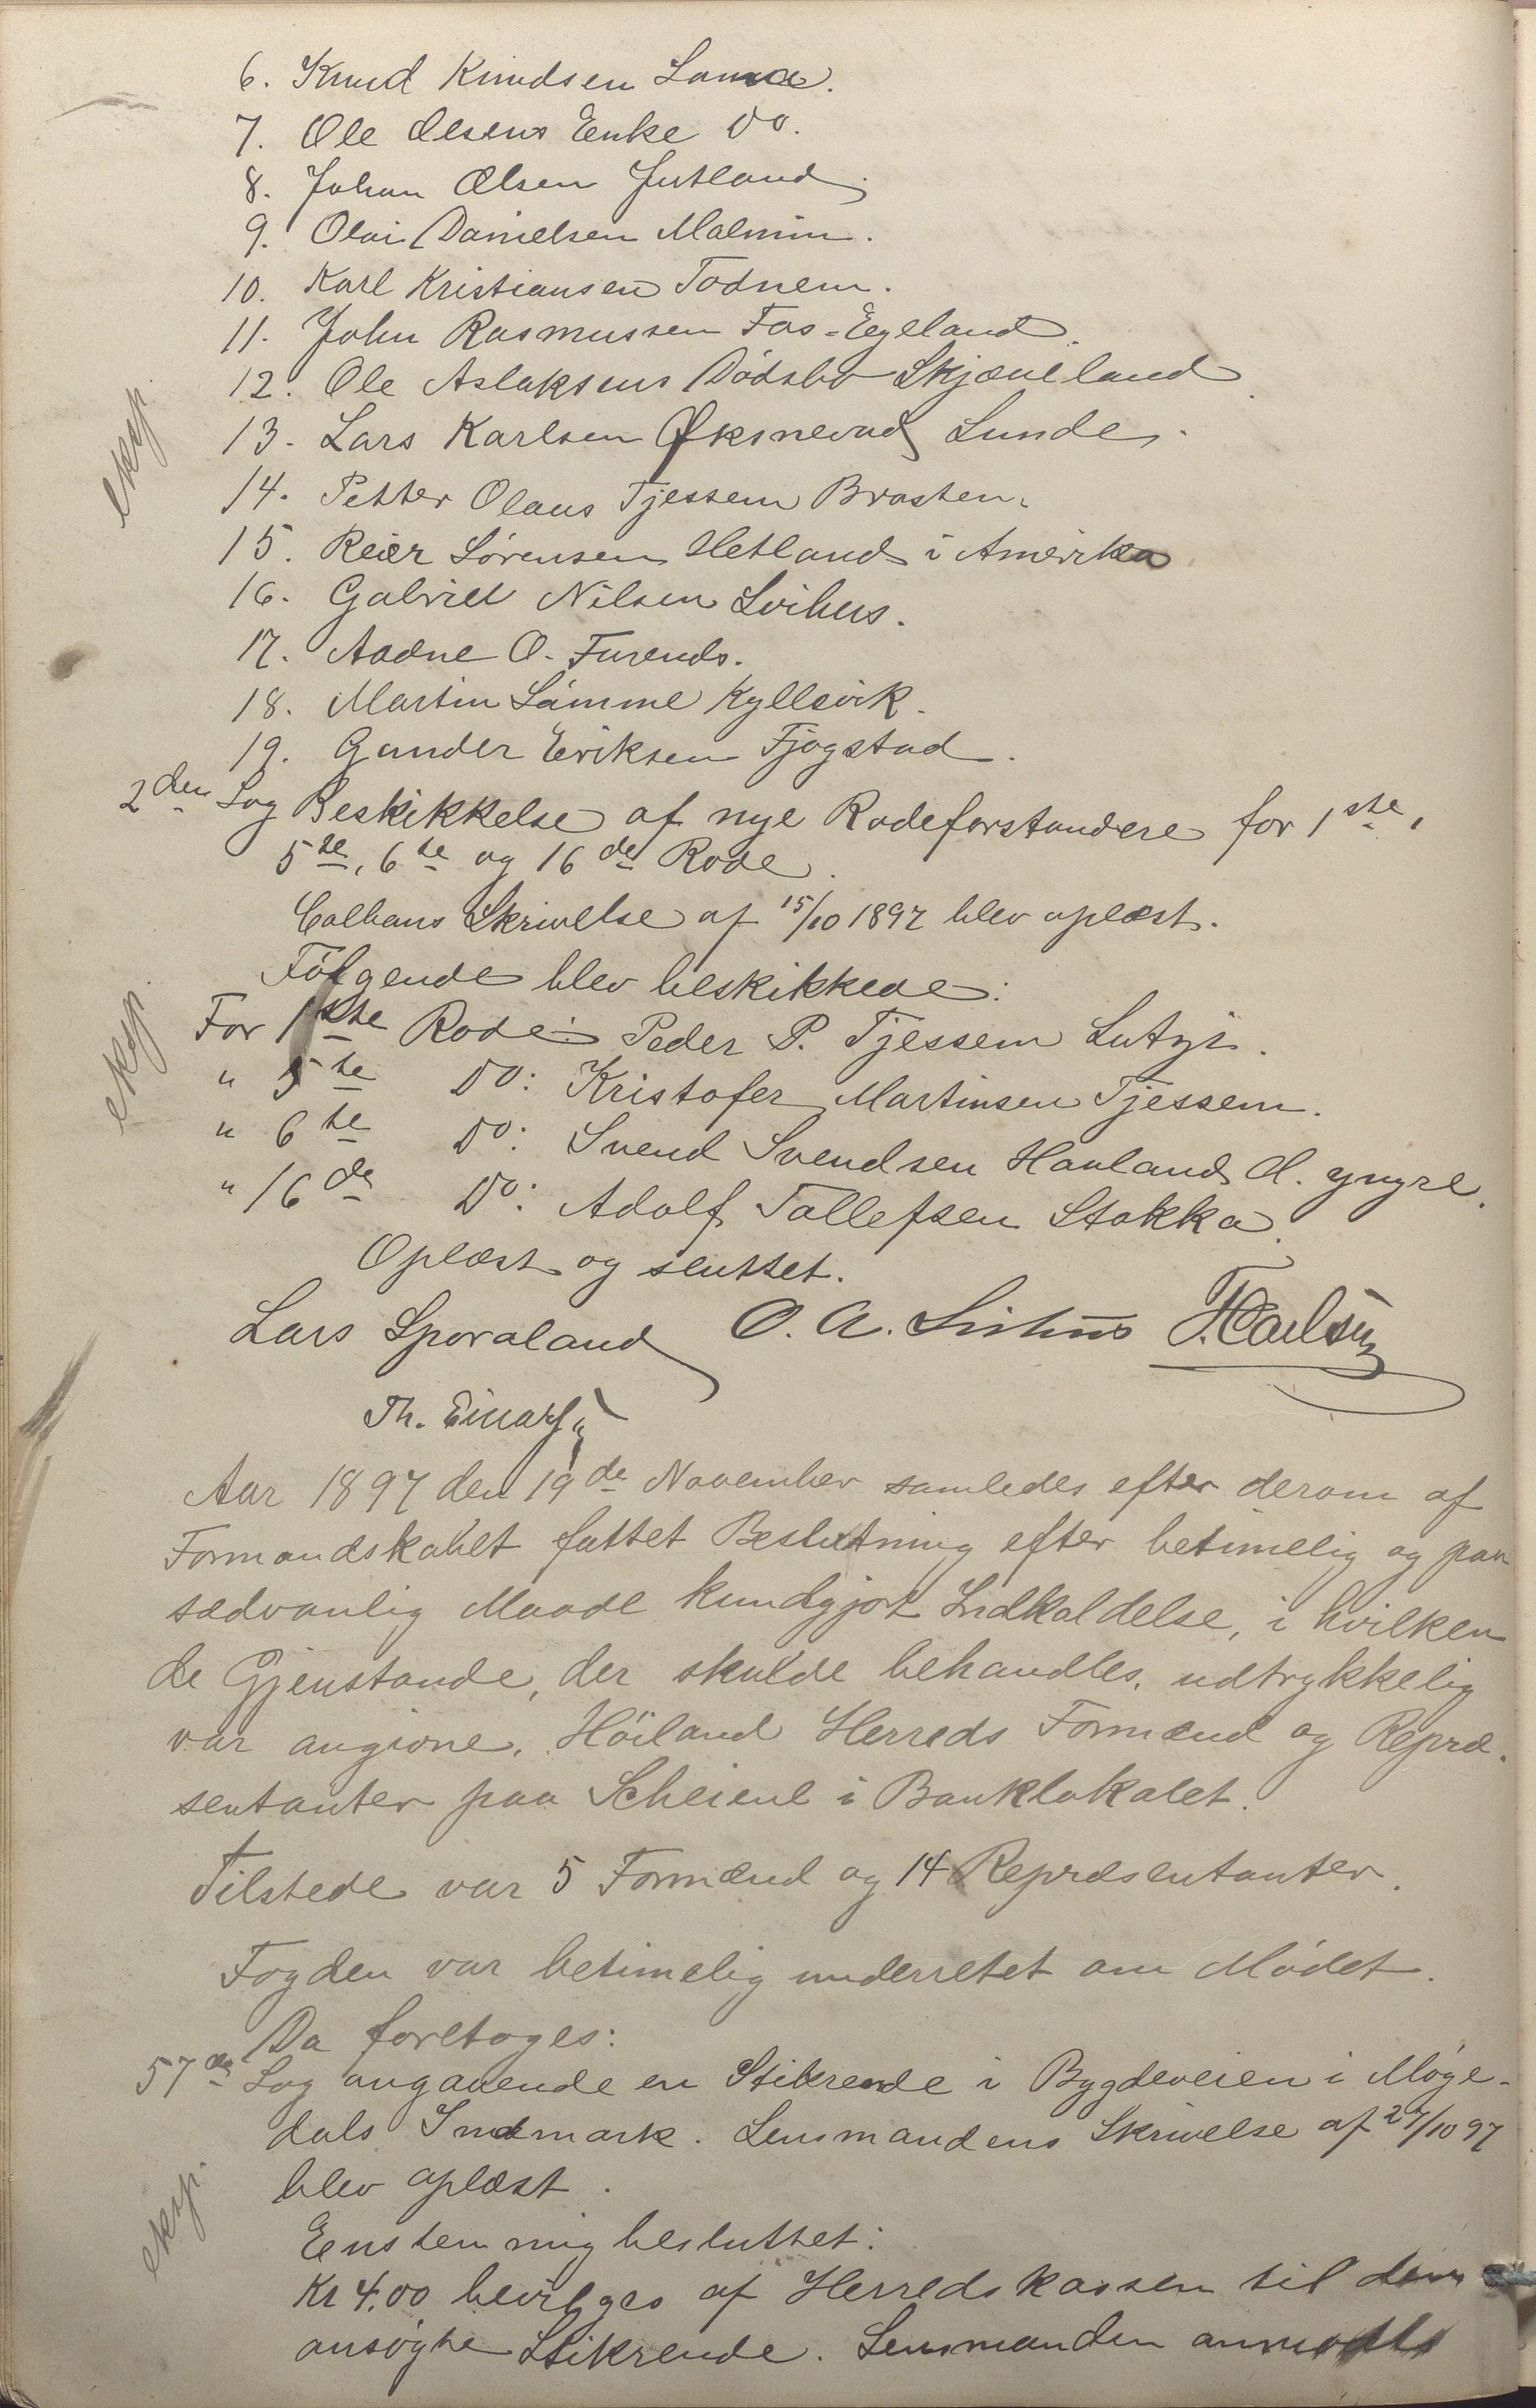 6. Knud Knudsen Lamæ.
7. Ole Olsens Enke Do.
8. Johan Olsen Jutland.
9. Olai Danielsen Malmin.
10. Karl Kristiansen Todnem.
11. John Rasmussen Fos-Eigeland.
12. Ole Aslaksens Dødsbo Skjæveland.
13. Lars Karlsen Øksnevad Lunde.
14. Petter Olaus Tjessem Brasten.
15. Reier Sørensen Hetland i Amerika.
16. Gabriel Nilsen Svihus.
17. Aadne O. Furends.
18. Martin Sømme Kyllesvik.
19. Gunder Eriksen Fjogstad.
2den Sag Beskikkelse af nye Rodeforstandere for 1ste,
5te, 6te og 16de Rode.
eksp.
Balhans Skrivelse af 15/10 1897 blev oplæst.
Følgende blev beskikkede:
For 1ste Rode: Peder P. Tjessem Lutsi.
" 5te Do: Kristofer Martinsen Tjessem.
" 6te Do: Svend Svendsen Hauland d. yngre.
" 16de Do: Adolf Tollefsen Stokka.
eksp.
Oplæst og sluttet.
Lars Sporaland O. A. Svihus T. Carlsen
Th. Einarsen
Aar 1897 den 19de November samledes efter derom af
Formandskabet fattet Beslutning efter betimelig og paa
sædvanlig Maade kundgjort Indkaldelse, i hvilken
de Gjenstande, der skulde behandles, udtrykkelig
var angivne, Höiland Herreds Formænd og Repræ-
sentanter paa Scheiene i Banklokalet.
Tilstede var 5 Formænd og 14 Repræsentanter.
Fogden var betimelig underrettet om Mödet.
Da foretoges:
57de Sag angaaende en Stikrende i Bygdeveien i Møge-
dals Indmark. Lensmandens Skrivelse af 27/10 97
blev oplæst.
eksp.
Enstemmig besluttet:
Kr 4.00 bevilges af Herredskassen til den
ansøgte Stikrende. Lensmanden anmodes